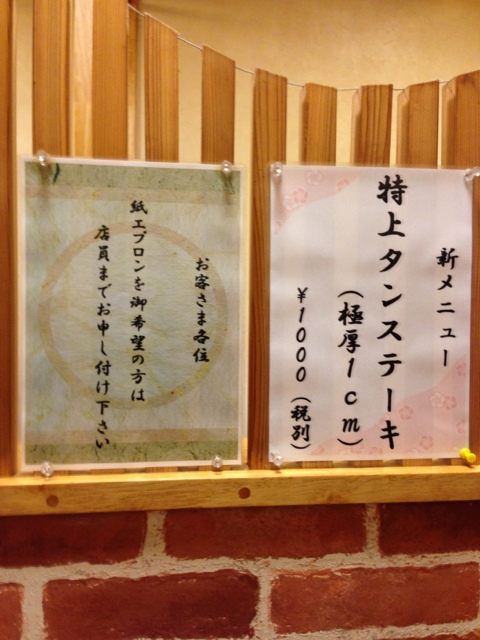 新メニュー
特上タンステーキ
（極厚1cm）
¥1000（税別）
お客さま各位
紙エプロンを御希望の方は
店員までお申し付け下さい